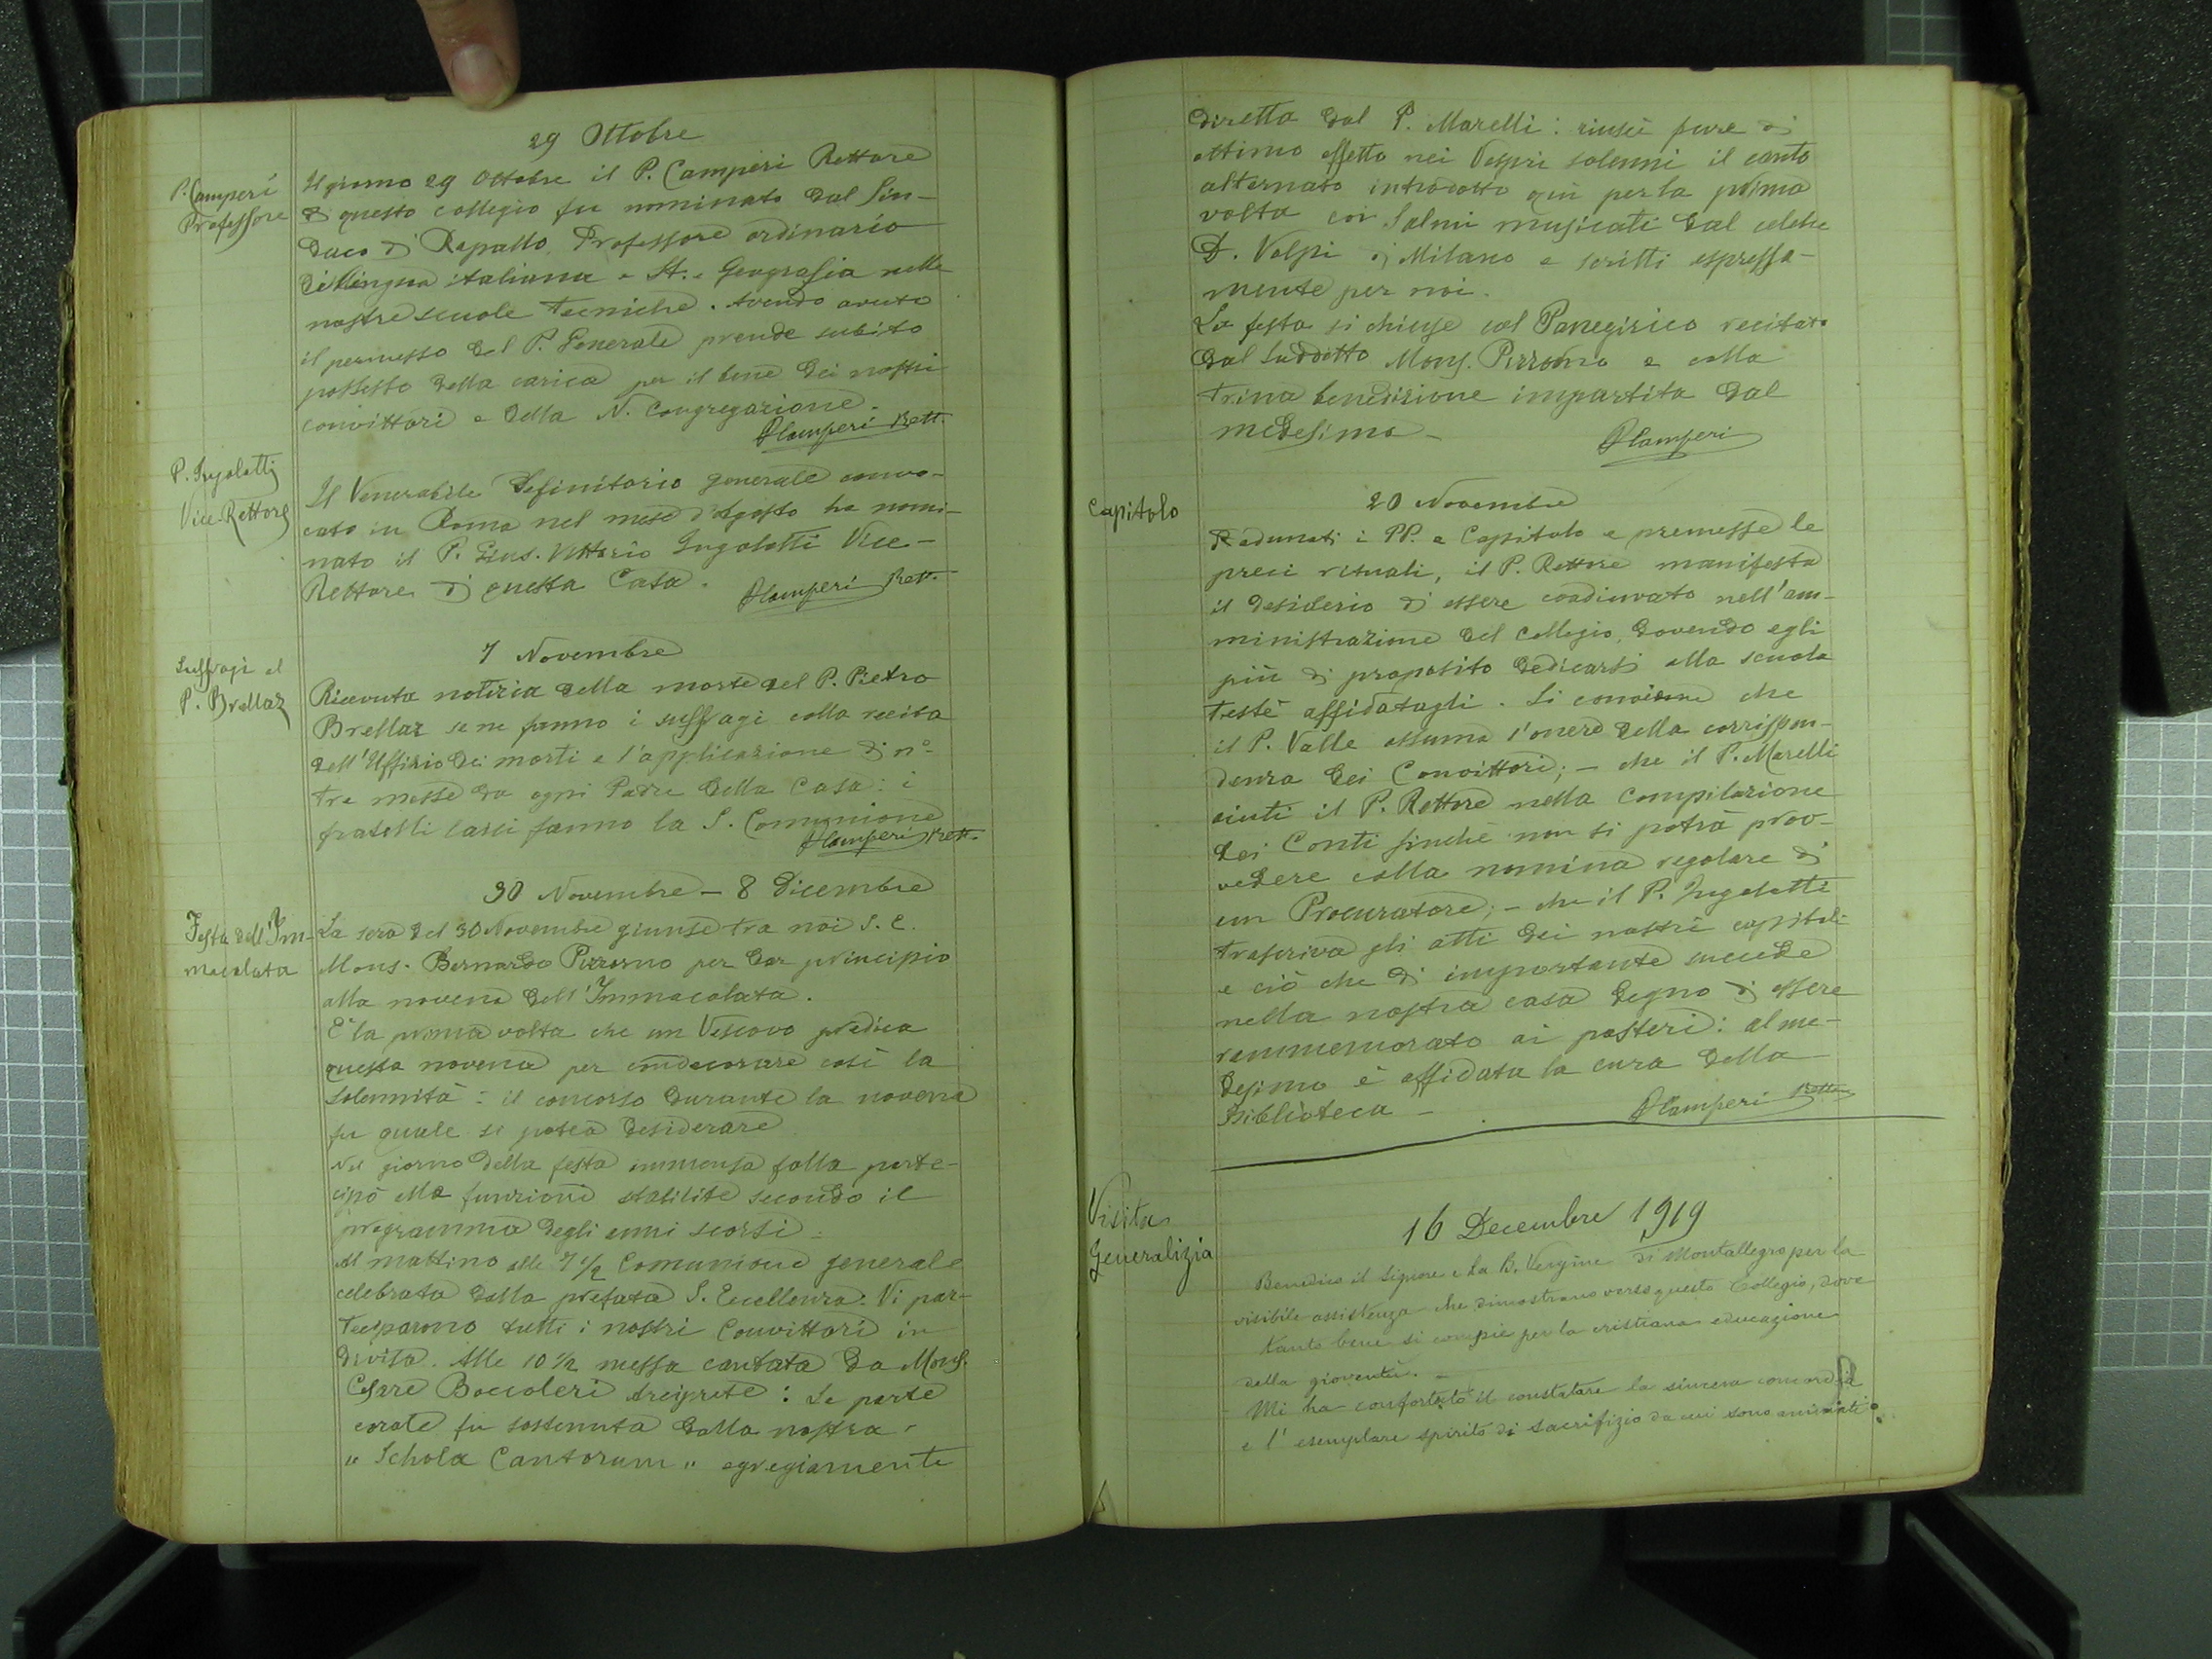 29 Ottobre
P. Camperi
Professore
Il giorno 29 Ottobre il P. Camperi Rettore
di questo collegio fu nominato dal Sin-
daco di Rapallo Professore ordinario
di lingua italiana e St. e Geografia nelle
nostre scuole Tecniche. Avendo avuto
il permesso del P. Generale prende subito
possesso della carica per il bene dei nostri
convittori e della N. Congregazione.
PCamperi Rett.
P. Ingolotti
Vice-Rettore
Il Venerabile Definitorio generale convo-
cato in Roma nel mese d'Agosto ha nomi-
nato il P. Gius. Vittorio Ingolotti Vice-
Rettore di questa Casa.
PCamperi Rett.
7 Novembre
Suffragi al
P. Brellaz
Ricevuta notizia della morte del P. Pietro
Brellaz se ne fanno i suffragi colla recita
dell'Uffizio dei morti e l'applicazione di n°
tre messe da ogni Padre della Casa: i
fratelli laici fanno la S. Comunione
PCamperi Rett.
30 Novembre - 8 Dicembre
Festa dell'Im-
macolata
La sera del 30 Novembre giunse tra noi S. E.
Mons. Bernardo Pizzorno per dar principio
alla novena dell'Immacolata.
È la prima volta che un Vescovo predica
questa novena per condecorare così la
solennità: il concorso durante la novena
fu quale si potea desiderare
Nel giorno della festa immensa folla parte-
cipò alle funzioni stabilite secondo il
programma degli anni scorsi:
Al mattino alle 7 1/2 Comunione generale
celebrata dalla prefata S. Eccellenza. Vi par-
teciparono tutti i nostri Convittori in
divisa. Alle 10 1/2 messa cantata da Mons.
Cesare Boccoleri Arciprete: La parte
corale fu sostenuta dalla nostra
" Schola Cantorum " egregiamente
diretta dal P. Marelli: riuscì pure di
ottimo effetto nei Vespri solenni il canto
alternato introdotto qui per la prima
volta coi Salmi musicati dal celebre
D. Volpi di Milano e scritti espressa-
mente per noi.
La festa si chiuse col Panegirico recitato
dal suddetto Mons. Pizzorno e colla
trina benedizione impartita dal
medesimo -
PCamperi
Capitolo
20 Novembre
Radunati i PP. a Capitolo e premesse le
preci rituali, il P. Rettore manifesta
il desiderio di essere coadiuvato nell'am-
ministrazione del Collegio, dovendo egli
più di proposito dedicarsi alla scuola
testè affidatagli. Si conviene che
il P. Valle assuma l'onere della corrispon-
denza dei Convittori; - che il P. Marelli
aiuti il P. Rettore nella compilazione
dei Conti finchè non si potrà prov-
vedere colla nomina regolare di
un Procuratore; - che il P. Ingolotti
trascriva gli atti dei nostri capitoli
e ciò che di importante succede
nella nostra casa degno di essere
rammemorato ai posteri: al me-
desimo è affidata la cura della
Biblioteca -
PCamperi Rettore
Visita
Generalizia
16 Decembre 1919
Benedico il Signore e la B. Vergine di Montallegro per la
visibile assistenza che dimostrano verso questo Collegio, dove
tanto bene si compie per la cristiana educazione
della gioventù. -
Mi ha confortato il constatare la sincera concordia
e l' esemplare spirito di sacrifizio da cui sono animati